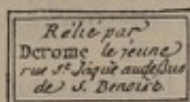 Rélié par
Derome le jeune
rue St. Jâque audessus
de S. Benoist